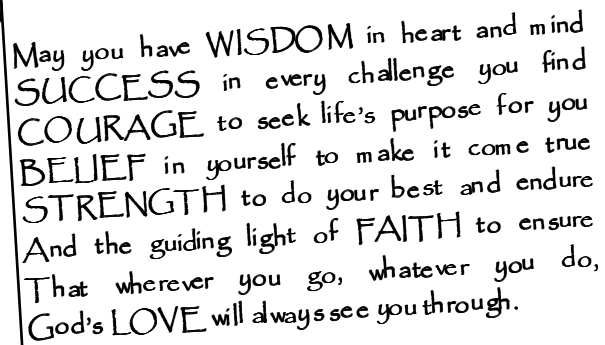 May you have WISDOM in heart and mind
SUCCESS in every challenge you find
COURAGE to seek life's purpose for you
BELIEF in yourself to make it come true
STRENGTH to do your best and endure
And the guiding light of FAITH to ensure
That wherever you go, whatever you do,
God's LOVE will always see you through.